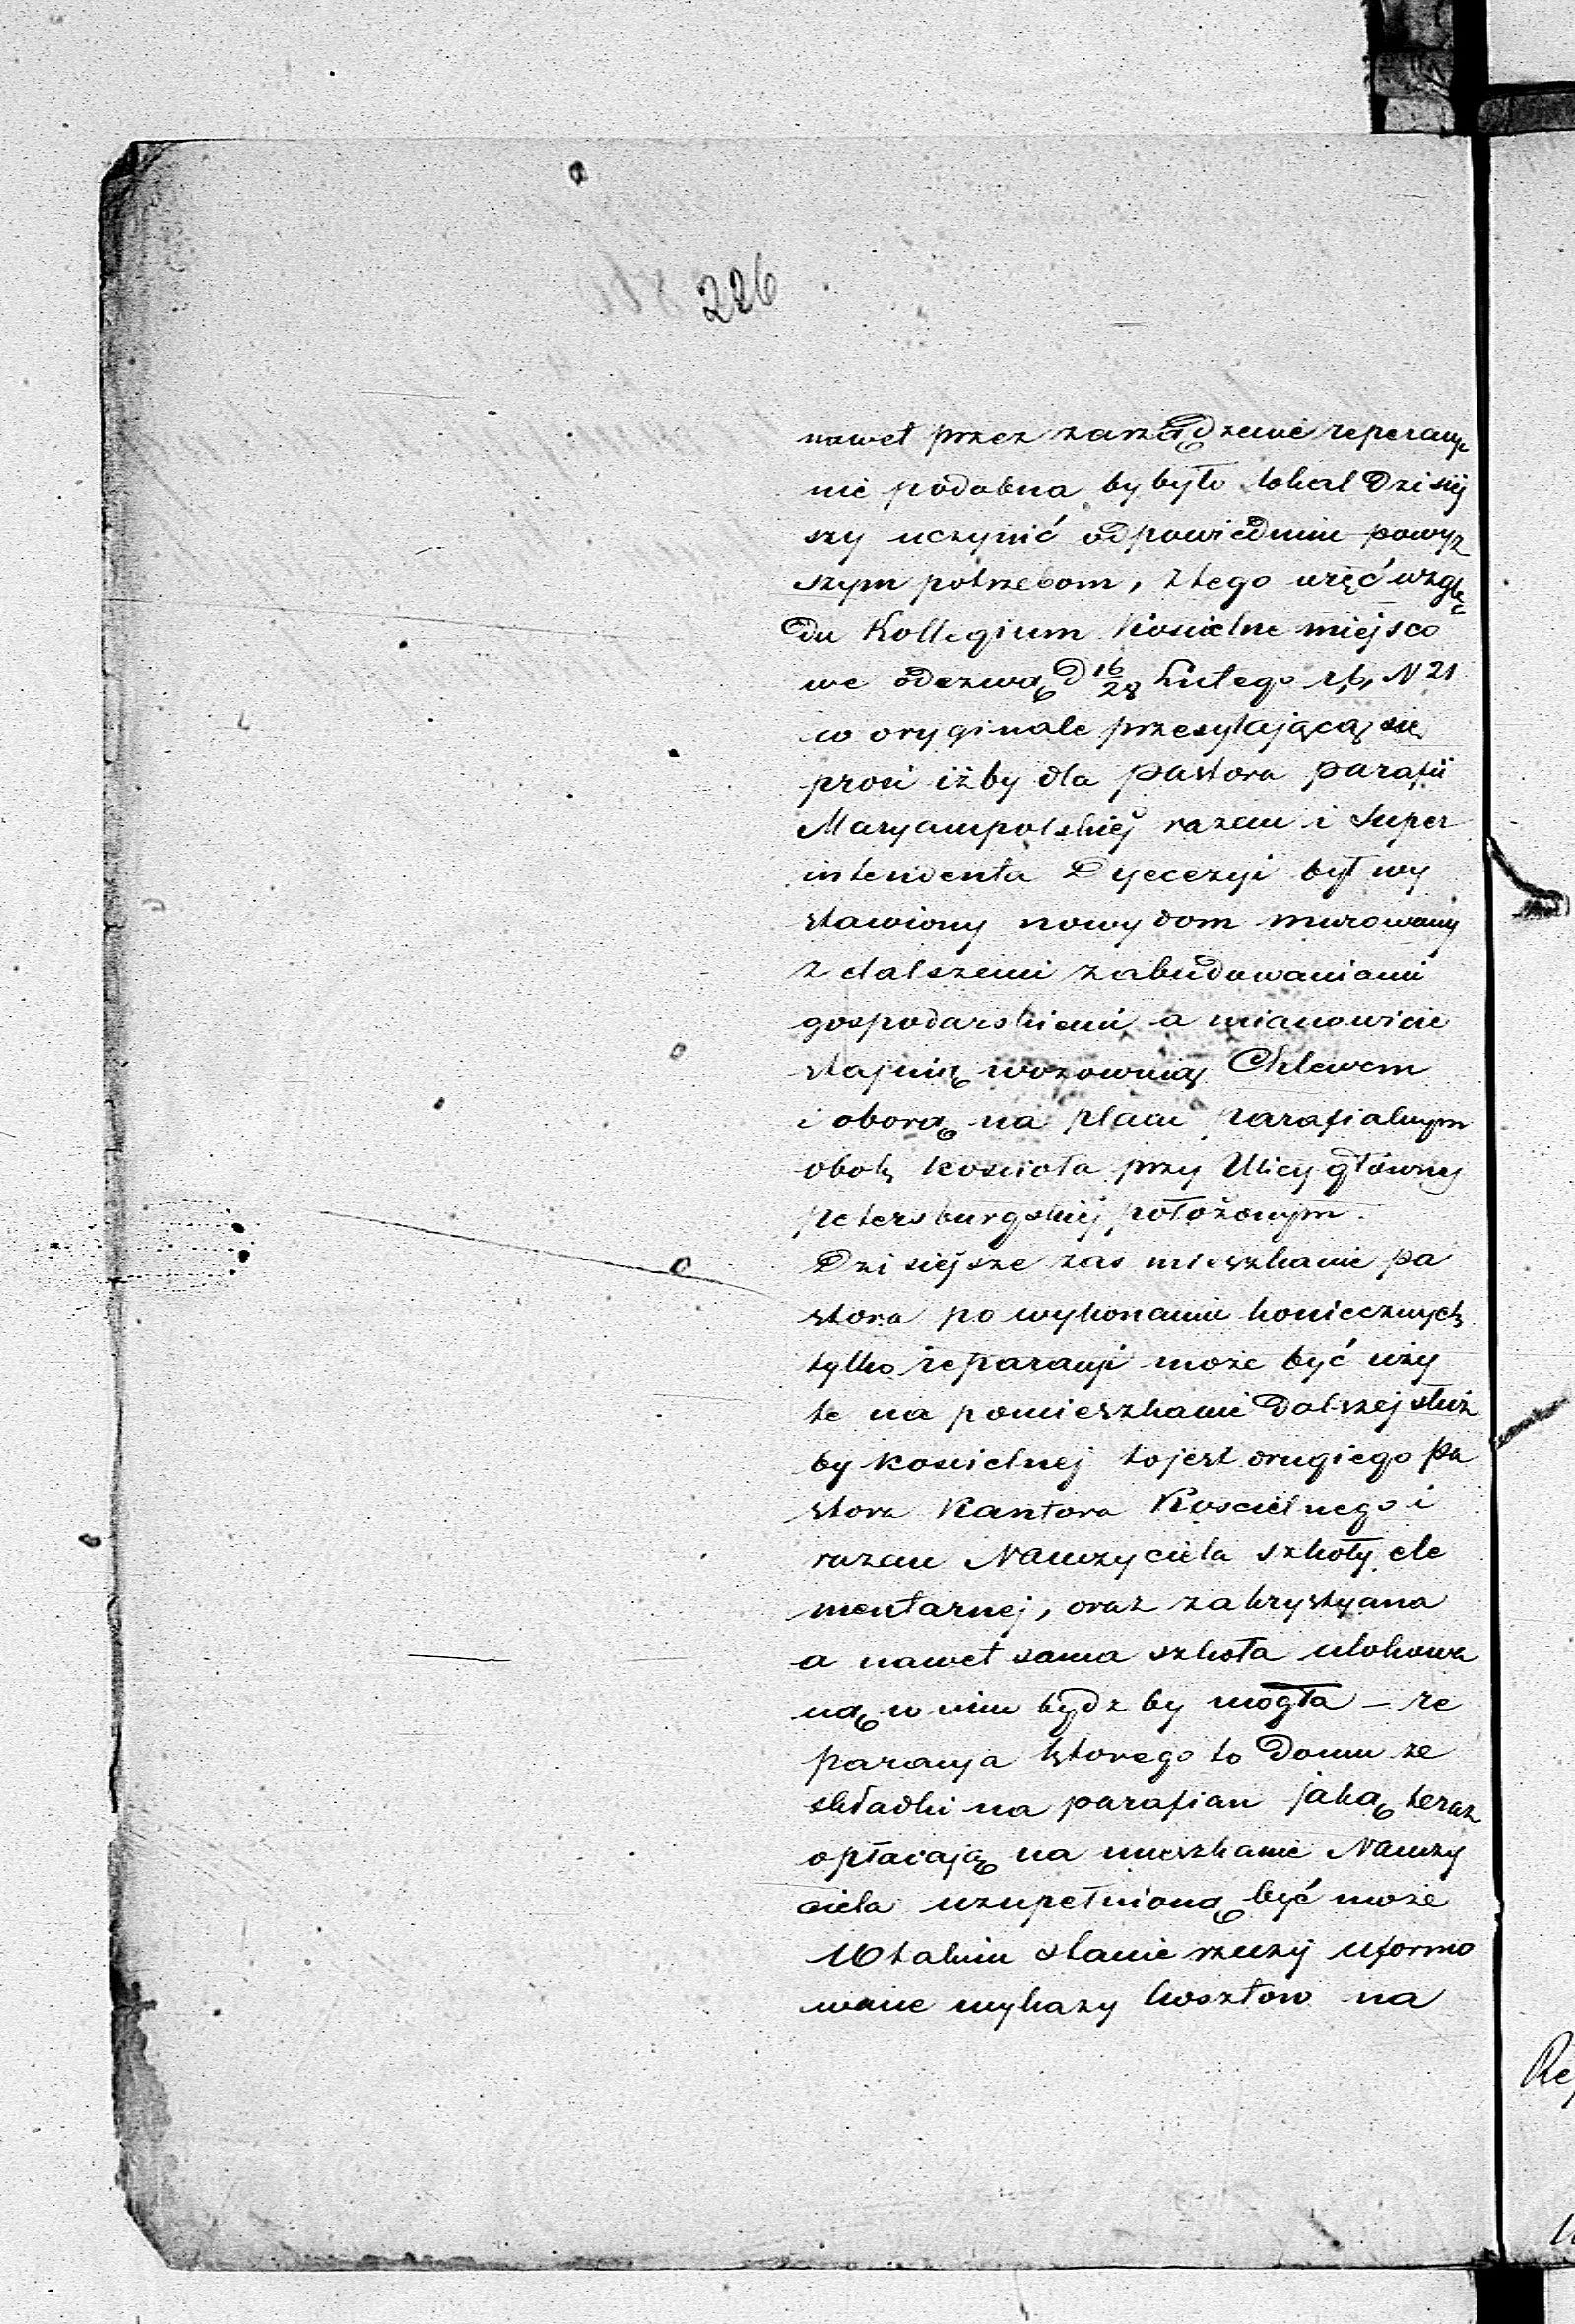 226
nawet przez zarządzenie reperacyi
nie podobna by było lokal Dzisiej
szy uczynić odpowiednim powyż
szym potrzebom, z tego więć wzglę
du Kollegium Koscielne miejsco
we odezwą d 16/28 Lutego r.b. N 21
w oryginale przesyłającą się
prosi iżby dla Pastora Parafii
Maryampolskiej razem i Super
intendenta Dyecezyi był wy
stawiony nowy dom murowany
z dalszemi zabudowaniami
gospodarskiemi a mianowicie
stajnią wozownią Chlewem
i oborą na placu Parafialnym
obok koscioła przy Ulicy główney
Petersburgskiej położonym.
Dzisiejsze zas mieszkanie Pa
stora po wykonaniu koniecznych
tylko reparacyi może być uży
te na pomieszkanie Dalszej służ
by koscielnej to jest drugiego Pa
stora Kantora Koscielnego i
razem Nauczyciela szkoły ele
mentarnej, oraz zakrystyana
a nawet sama szkoła ulokowa
ną w nim bydz by mogła – re
paracya ktorego to Domu ze
składki na parafian jaką teraz
opłacają na mieszkanie Nauczy
ciela uzupełnioną być może
W takim stanie rzeczy uformo
wane wykazy kosztow na
Re